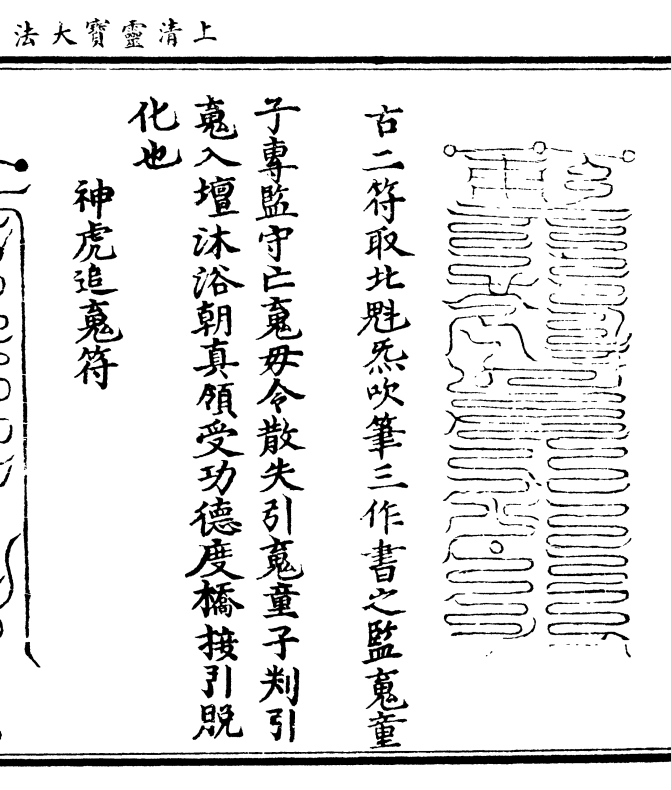 上清靈寶大法
右二符取北魁炁吹筆三作書之監䰟童
子專監守亡䰟毋令散失引䰟童子判引
䰟入壇沐浴朝真領受功德度橋接引脫
化也
神虎追䰟符